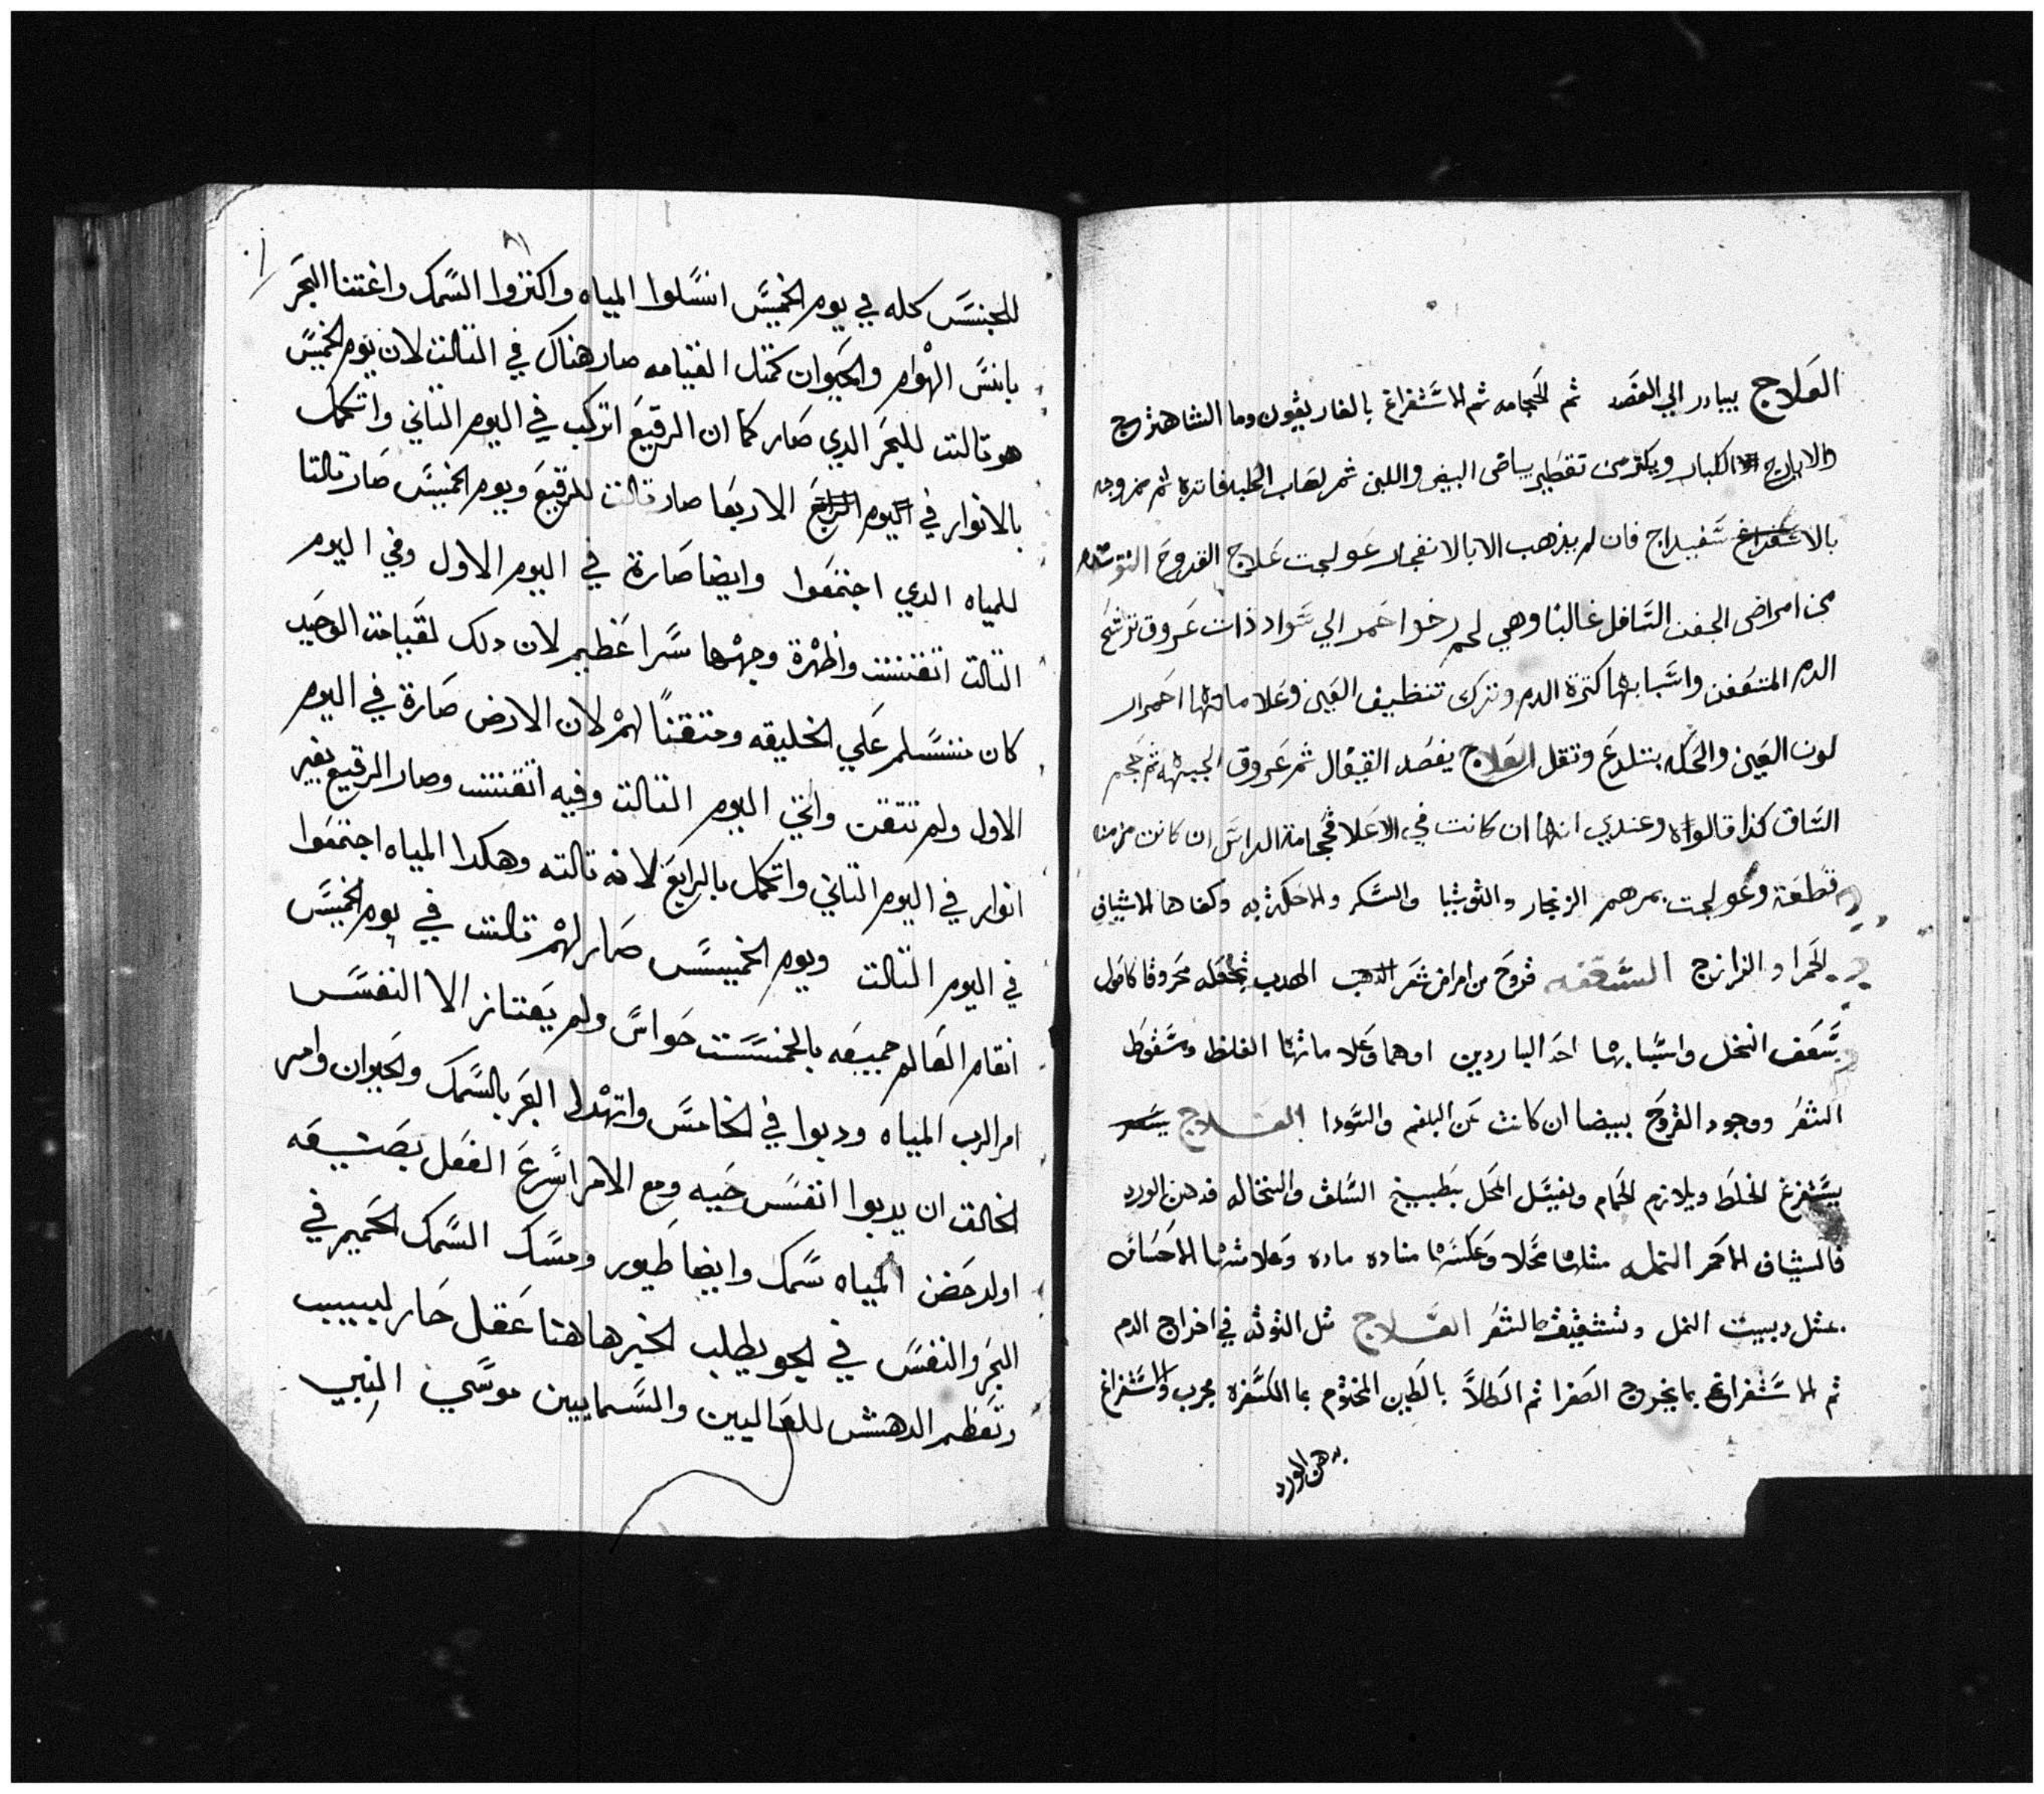 العلاج يبادر الي الفصد ثم الحجامه ثم الاستفراغ بالغاريقون وما الشاهترج
والايارج الكبار ويكثر من تقطير بياض البيض واللبن ثم لعاب الحلبه فاتره ثم ممزوجه
بالاسفيداج فان لم يذهب الا بالانفجار عولجت علاج القروح التوته
من امراض الجفن السافل غالبا وهي لحم رخو احمر الي سواد ذات عروق ترشح
الدم المتعفن واسبابها كترة الدم وترك تنظيف العين وعلاماتها احمرار
لون العين والحكه بتلدع وتقل العلاج يفصد القيفال ثم عروق الجبهه ثم حجم
الساق كذا قالواه وعندي انها ان كانت في الاعلا فحجامة الراس ان كانت مزمنه
قطعة وعولجت بمرهم الزنجار والتوتيا والسكر والاحكه به وكفاها الاشياني
الحمرا و الزرانيج السعفه قروح من امراض شعر الهدب تجعله محروقا كاصول
سعف النخل واسبابها احد الباردين اوهما وعلاماتها الغلظ وسقوط
الشعر ووجود القروح بيضا ان كانت عن البلغم والسودا العلاج
يستفرغ الخلط ويلازم الحمام ويغسل المحل بطبيخ السلق والنخاله فدهن الورد
فالشياف الاحمر النمله مثلها محلا وعكسها مناده ماده وعلامتها الاحساس
بمثل دبيب النمل وتشقيق الشعر العلاج مثل التوته في اخراج الدم
ثم الاستفراغ بما يخرج الصفرا ثم الطلا بالطين المختوم بما الكسفره مجرب والاستفراغ
بدهن الورد
للجنس كله في يوم الخميس انسلوا المياه واكنزوا السمك واغتنا البحر
باتنس الهوام والحيوان كمتل القيامه صار هناك في التالت لان يوم الخميس
هو تالت للبحر الدي صار كما ان الرقيع اتركب في اليوم التاني واتكمل
بالانوار في اليوم الرابع الاربعا صار تالت للرقيع ويوم الخميس صار تالتا
للمياه الدي اجتمعوا وايضا صارة في اليوم الاول وفي اليوم
التالت اتقتنت واظهرة وجهها سرا عظيم لان دلك لقيامت الوحيد
كان متسلم علي الخليقه ومتقنا لهم لان الارض صارة في اليوم
الاول ولم تتقت واتي اليوم التالت وفيه اتقنت وصار الرقيع بغير
انوار في اليوم التاني واتكمل بالرابع لانه تالته وهكدا المياه اجتمعوا
في اليوم التالت ويوم الخميس صار لهم تالت في يوم الخميس
اتقام العالم جميعه بالخمست حواس ولم يعتاز الا النفس
امر الرب المياه ودبوا في الخامس واتهدا البحر بالسمك والحيوان وامر
الخالق ان يدبوا انفس حيه ومع الامر اسرع الفعل بصنيعه
اولد حضن المياه سمك وايضا طيور ومسك السمك الحمير في
البحر والنفس في الجو يطلب الخبر هاهنا عقل حار لبيب
وتعظم الدهش للعاليين والسمايين موسي النبي